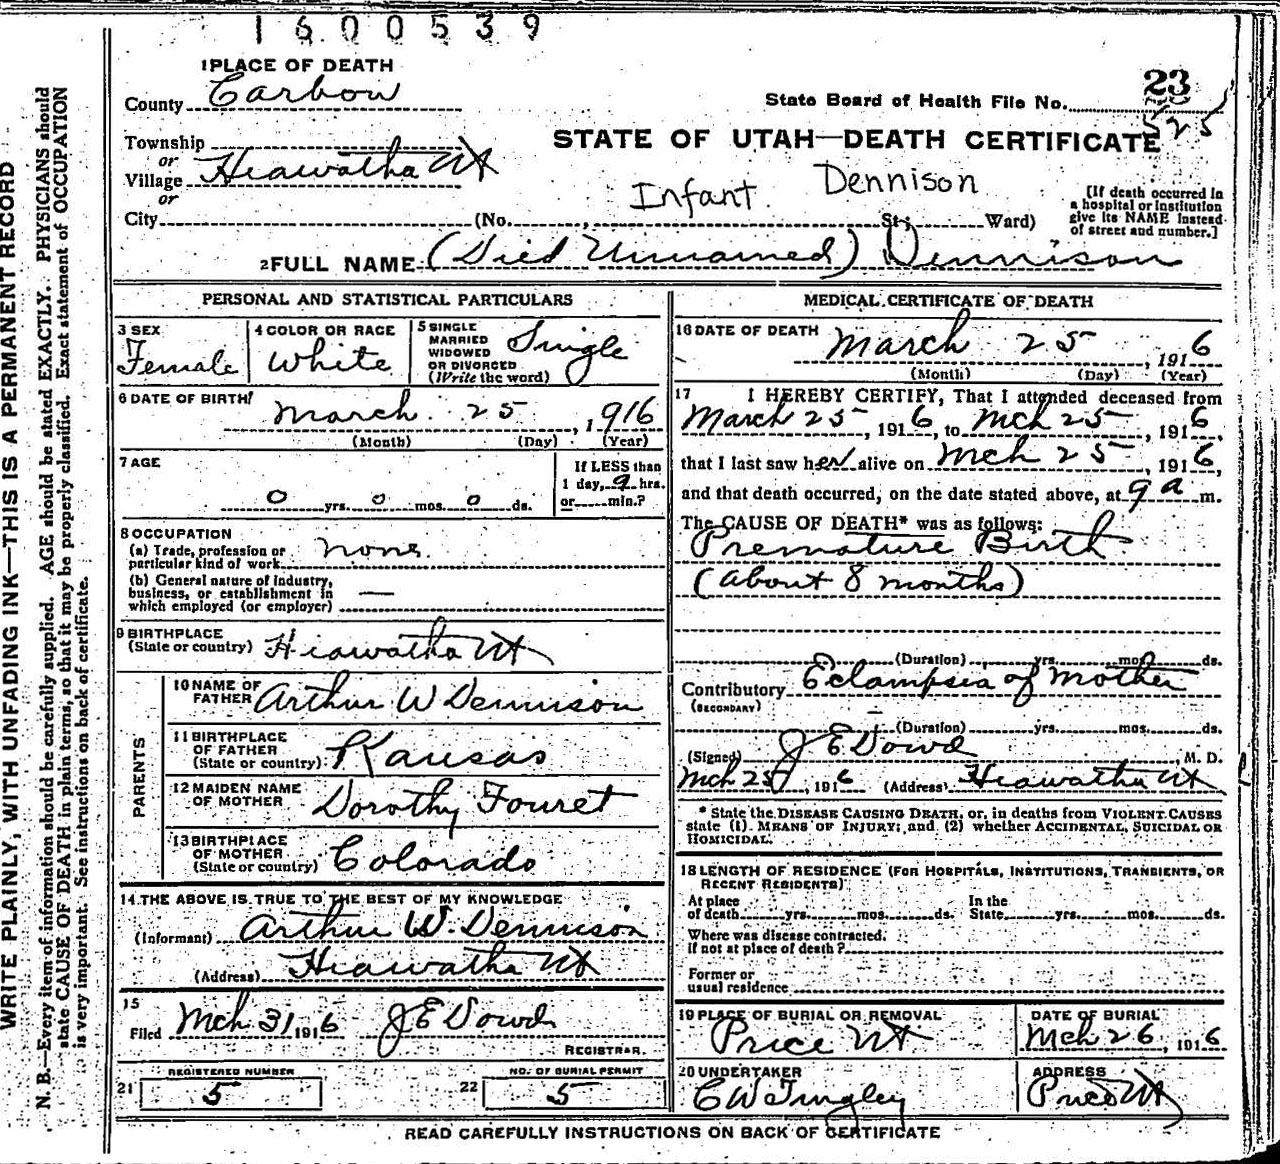 1600539
1 PLACE OF DEATH
County Carbon
23
State Board of Health File No.
525
Township
or
Village Hiawatha Ut
or
STATE OF UTAH—DEATH CERTIFICATE
Infant Dennison
City (No. St.; Ward)
[If death occurred in
a hospital or institution
give its NAME instead
of street and number.]
2 FULL NAME (Died Unnamed) Dennison
PERSONAL AND STATISTICAL PARTICULARS
3 SEX
Female
4 COLOR OR RACE
White
5 SINGLE
MARRIED
WIDOWED
OR DIVORCED
(Write the word)
Single
6 DATE OF BIRTH
March 25, 1916
(Month) (Day) (Year)
7 AGE
0 yrs. 0 mos. 0 ds.
If LESS than
1 day, 9 hrs.
or min.?
8 OCCUPATION
(a) Trade, profession or
particular kind of work none
(b) General nature of industry,
business, or establishment in
which employed (or employer) —
9 BIRTHPLACE
(State or country) Hiawatha Ut
PARENTS
10 NAME OF
FATHER Arthur W Dennison
11 BIRTHPLACE
OF FATHER
(State or country) Kansas
12 MAIDEN NAME
OF MOTHER Dorothy Fouret
13 BIRTHPLACE
OF MOTHER
(State or country) Colorado
14 THE ABOVE IS TRUE TO THE BEST OF MY KNOWLEDGE
(Informant) Arthur W. Dennison
(Address) Hiawatha Ut
15
Filed Mch 31, 1916 J E Dowd
REGISTRAR.
REGISTERED NUMBER
21 5
NO. OF BURIAL PERMIT
22 5
MEDICAL CERTIFICATE OF DEATH
16 DATE OF DEATH
March 25, 1916
(Month) (Day) (Year)
17 I HEREBY CERTIFY, That I attended deceased from
March 25, 1916, to Mch 25, 1916,
that I last saw her alive on Mch 25, 1916,
and that death occurred, on the date stated above, at 9 a m.
The CAUSE OF DEATH* was as follows:
Premature Birth
(about 8 months)
(Duration) yrs. mos. ds.
Contributory Eclampsia of Mother
(SECONDARY)
(Duration) yrs. mos. ds.
(Signed) J E Dowd, M. D.
Mch 25, 1916 (Address) Hiawatha Ut
* State the DISEASE CAUSING DEATH, or, in deaths from VIOLENT CAUSES
state (1) MEANS OF INJURY; and (2) whether ACCIDENTAL, SUICIDAL OR
HOMICIDAL.
18 LENGTH OF RESIDENCE (FOR HOSPITALS, INSTITUTIONS, TRANSIENTS, OR
RECENT RESIDENTS)
At place
of death yrs. mos. ds.
In the
State yrs. mos. ds.
Where was disease contracted.
if not at place of death?
Former or
usual residence
19 PLACE OF BURIAL OR REMOVAL
Price Ut
DATE OF BURIAL
Mch 26, 1916
20 UNDERTAKER
C W Tingley
ADDRESS
Price Ut
READ CAREFULLY INSTRUCTIONS ON BACK OF CERTIFICATE
WRITE PLAINLY, WITH UNFADING INK—THIS IS A PERMANENT RECORD
N. B.—Every item of information should be carefully supplied. AGE should be stated EXACTLY. PHYSICIANS should
state CAUSE OF DEATH in plain terms, so that it may be properly classified. Exact statement of OCCUPATION
is very important. See instructions on back of certificate.